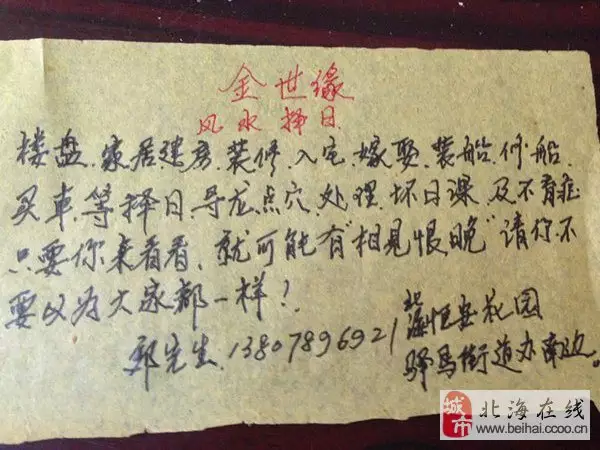 金世缘
风水择日
楼盘.家居建房.装修.入宅.嫁娶.装船.修船.
买车.等择日.寻龙点穴.处理.坏日课.及不育症
只要你来看看.就可能有"相见恨晚"请你.不
要以为大家都一样!
郑先生.13807896921
北海恒安花园
驿马街道办南边。
城市
北海在线
www.beihai.ccoo.cn